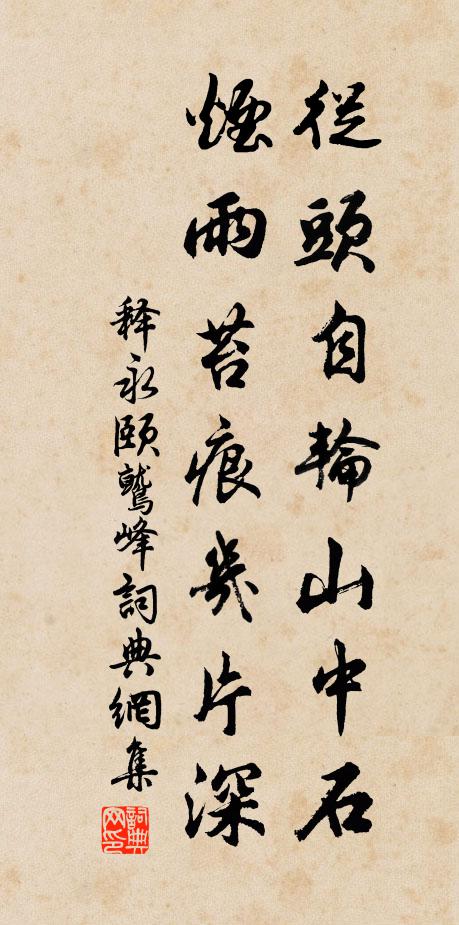 從頭自輪山中石
煙雨苔痕幾片深
释永頤鷲峰詞典網集
詞典
网印